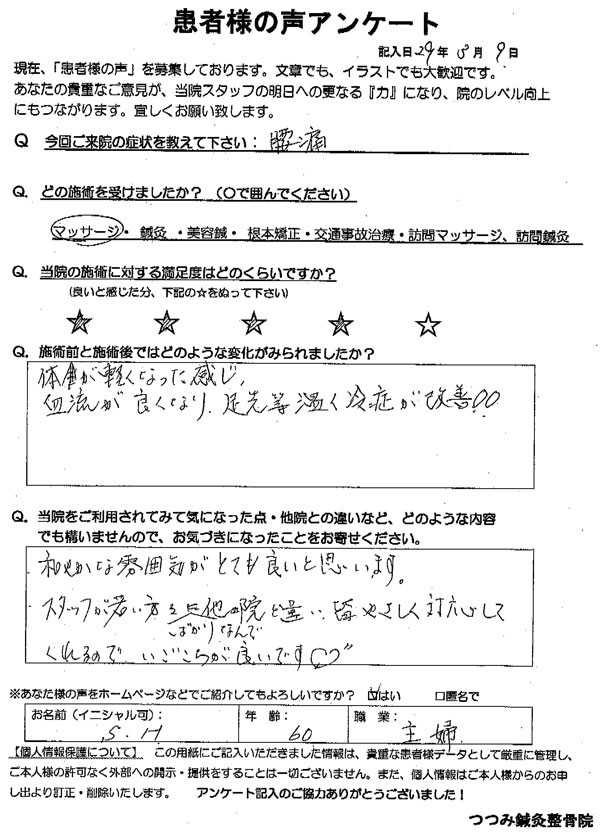 患者様の声アンケート
記入日 29年 5月 9日
現在、「患者様の声」を募集しております。文章でも、イラストでも大歓迎です。
あなたの貴重なご意見が、当院スタッフの明日への更なる『力』になり、院のレベル向上
にもつながります。宜しくお願い致します。
Q 今回ご来院の症状を教えて下さい：腰痛
Q. どの施術を受けましたか？（〇で囲んでください）
マッサージ・鍼灸・美容鍼・根本矯正・交通事故治療・訪問マッサージ、訪問鍼灸
Q. 当院の施術に対する満足度はどのくらいですか？
(良いと感じた分、下記の☆をぬって下さい)
★ ★ ★ ★ ☆
Q. 施術前と施術後ではどのような変化がみられましたか？
体重が軽くなった感じ、
血流が良くなり、足先等温く冷症が改善!!
Q. 当院をご利用されてみて気になった点・他院との違いなど、どのような内容
でも構いませんので、お気づきになったことをお寄せください。
和やかな雰囲気がとても良いと思います。
スタッフが若い方 他の院と違い、皆やさしく対応して
ばかりなんで
くれるので いごこちが良いです♡
※あなた様の声をホームページなどでご紹介してもよろしいですか？ ☑はい □匿名で
お名前（イニシャル可）： S.H 年 齢： 60 職 業： 主婦
【個人情報保護について】 この用紙にご記入いただきました情報は、貴重な患者様データとして厳重に管理し、
ご本人様の許可なく外部への開示・提供をすることは一切ございません。また、個人情報はご本人様からのお申
し出より訂正・削除いたします。 アンケート記入のご協力ありがとうございました！
つつみ鍼灸整骨院